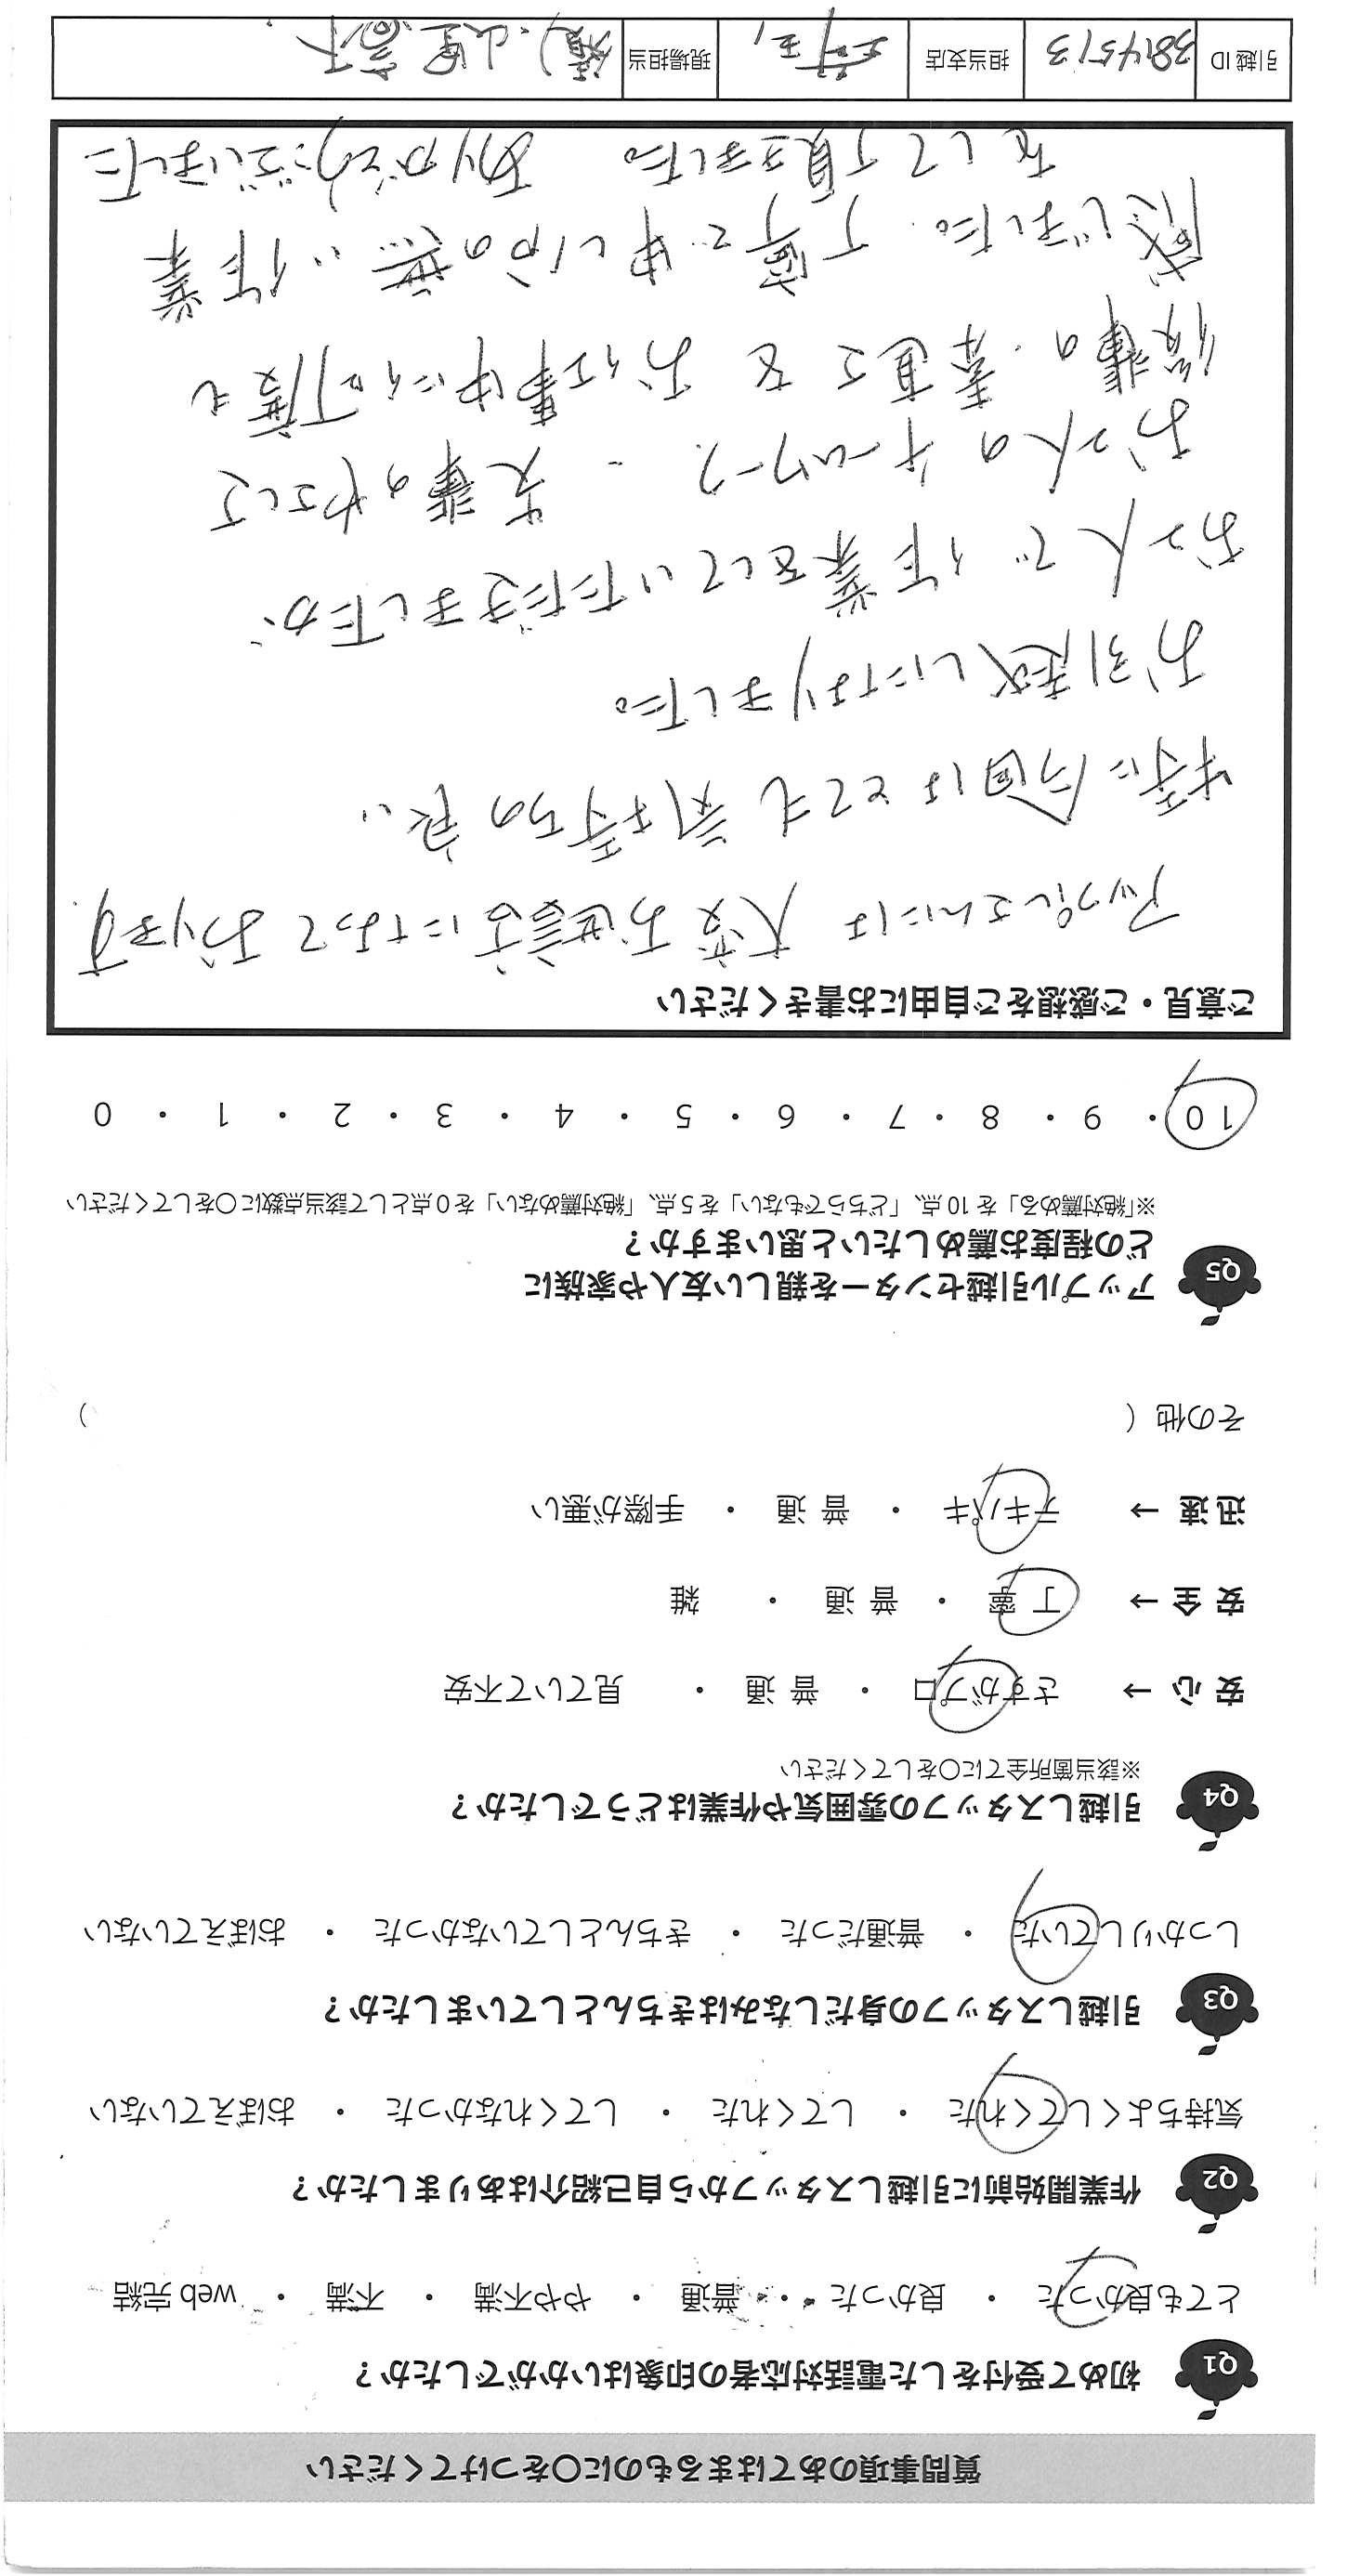 質問事項のあてはまるものに○をつけてください
Q1 初めて受付をした電話対応者の印象はいかがでしたか？
とても良かった ・ 良かった ・ 普通 ・ やや不満 ・ 不満 ・ web 完結
Q2 作業開始前に引越しスタッフから自己紹介はありましたか？
気持ちよくしてくれた ・ してくれた ・ してくれなかった ・ おぼえていない
Q3 引越しスタッフの身だしなみはきちんとしていましたか？
しっかりしていた ・ 普通だった ・ きちんとしていなかった ・ おぼえていない
Q4 引越しスタッフの雰囲気や作業はどうでしたか？
※該当箇所全てに○をして​ください
安 心 → さすがプロ ・ 普 通 ・ 見ていて不安
安 全 → 丁 寧 ・ 普 通 ・ 雑
迅 速 → テキパキ ・ 普 通 ・ 手際が悪い
その他（ ）
Q5 アップル引越センターを親しい友人や家族に
どの程度お薦めしたいと思いますか？
※「絶対薦める」を 10 点、「どちらでもない」を 5 点、「絶対薦めない」を 0 点として該当点数に○をしてください
10 ・ 9 ・ 8 ・ 7 ・ 6 ・ 5 ・ 4 ・ 3 ・ 2 ・ 1 ・ 0
ご意見・ご感想をご自由にお書きください
アップルさんには 大変お世話になっております。
特に今回はとても気持ちの良い
お引越しになりました。
お2人で作業をしていただきましたが
お2人のチームワーク、先輩のやさしさ
後輩の素直さを お仕事中に何度も
感じました。丁寧で申し分の無い作業
をして頂きました。 ありがとうございました
引越 ID 3814513 担当支店 埼玉 現場担当